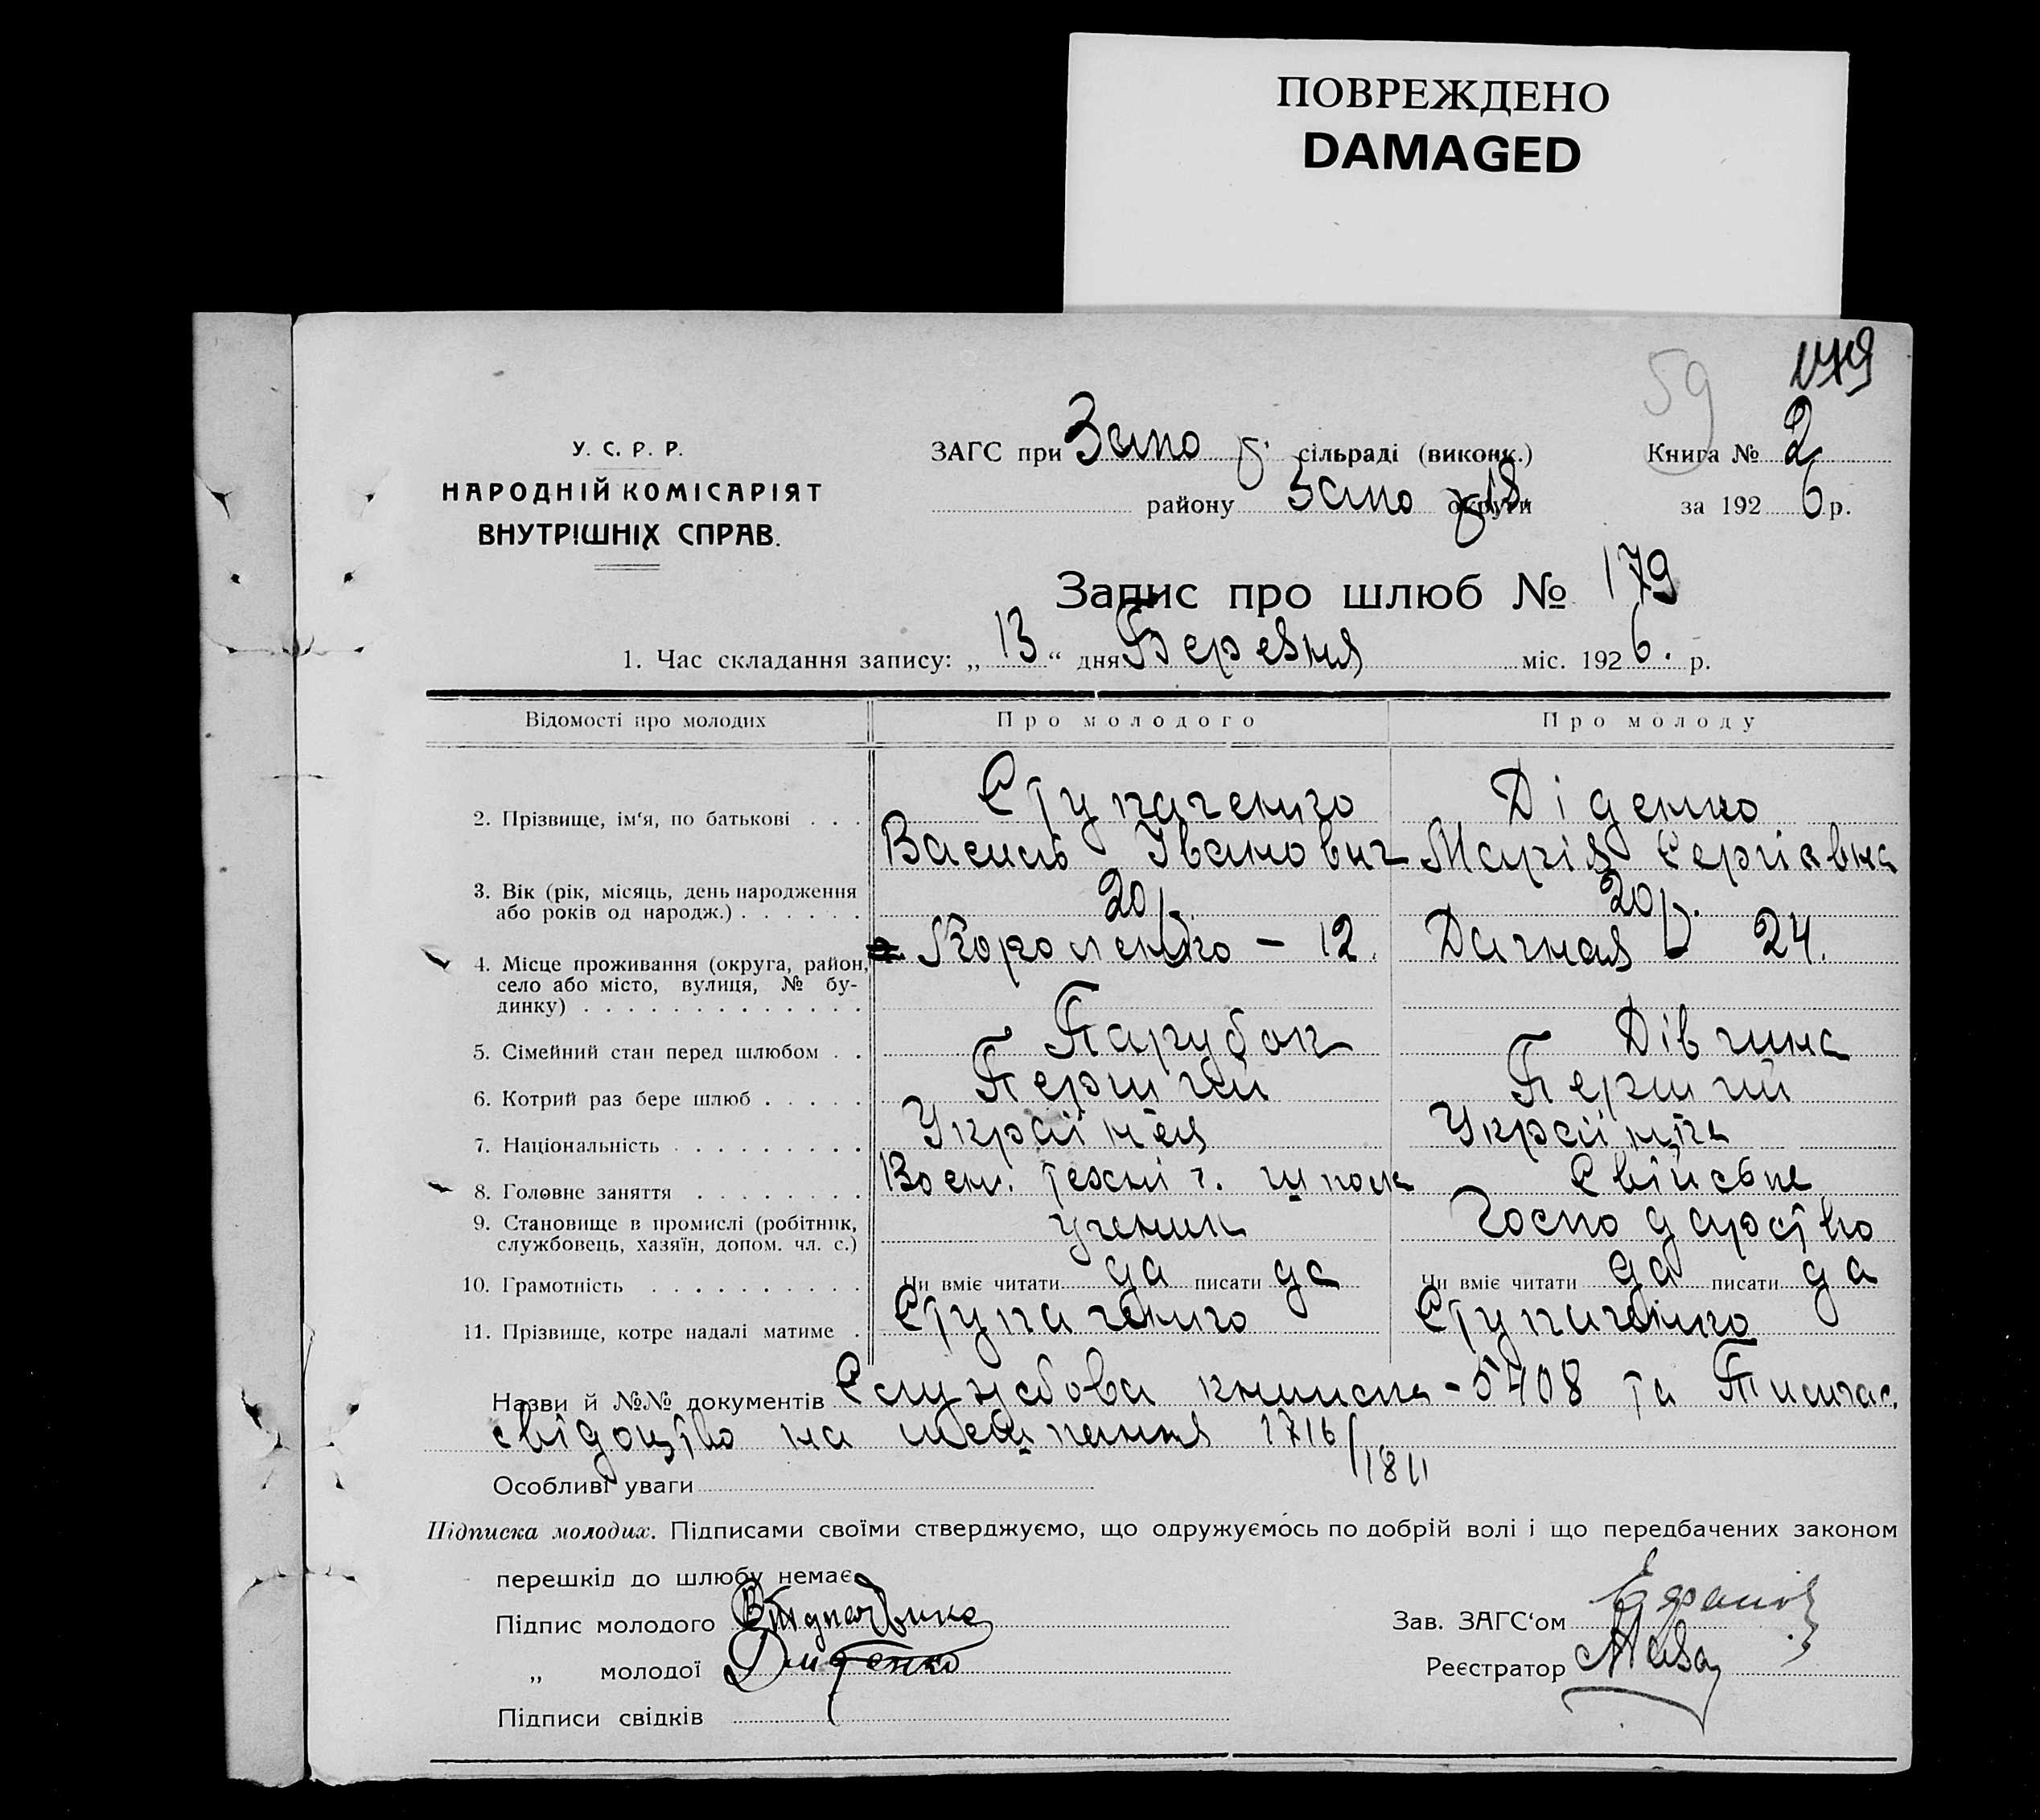 ПОВРЕЖДЕНО
DAMAGED
59
179
У. С. Р. Р.
НАРОДНІЙ КОМІСАРІЯТ
ВНУТРІШНІХ СПРАВ.
ЗАГС при Запо сільраді (виконк.)
Книга № 2
району Запо округи
за 1926 р.
Запис про шлюб № 179
1. Час складання запису: „13“ дня Березня міс. 1926. р.
Відомості про молодих Про молодого Про молоду
2. Прізвище, ім‘я, по батькові . . . Ступаченко Діденко
Василь Іванович Марія Сергіївна
3. Вік (рік, місяць, день народження 20 р. 20 р.
або років од народж.) . . . . . .
Короленко – 12. Дачная 24.
4. Місце проживання (округа, район,
село або місто, вулиця, № бу-
динку) . . . . . . . . . . . . .
5. Сімейний стан перед шлюбом . . Парубок Дівчина
6. Котрий раз бере шлюб . . . . . Перший Перший
7. Національність . . . . . . . . . Українец Українка
8. Головне заняття . . . . . . . . Воен. техніч. школ Свійське
9. Становище в промислі (робітник, ученик Господарство
службовець, хазяїн, допом. чл. с.)
10. Грамотність . . . . . . . . . . Чи вміє читати да писати да Чи вміє читати да писати да
11. Прізвище, котре надалі матиме . Ступаченко Ступаченко
Назви й №№ документів Службова книжка - 5408 та
свідоцтво на 1716/1811
Особливі уваги
Підписка молодих. Підписами своїми стверджуємо, що одружуємось по добрій волі і що передбачених законом
перешкід до шлюбу немає
Підпис молодого
Зав. ЗАГС‘ом
„ молодої Диденко
Реєстратор
Підписи свідків